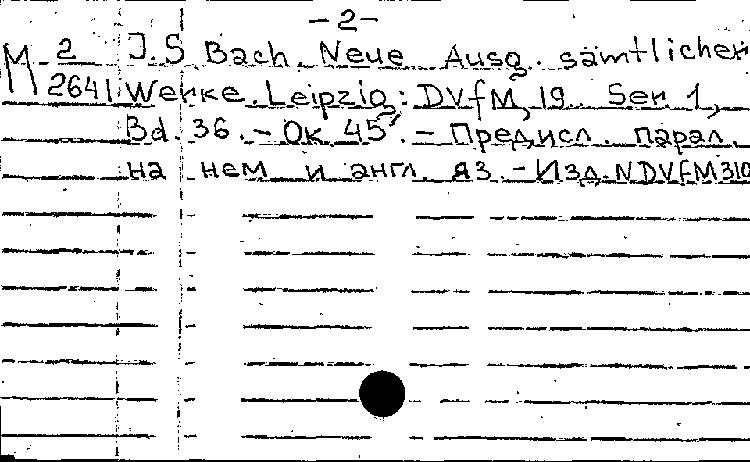 -2-
M 2 J.S Bach. Neue Ausg. sämtlicher
2641 Werke. Leipzig: DVfM, 19.. Ser 1,
Bd. 36. - Ок 45'. - Предисл. парал.
на нем и англ. яз. - Изд. N DVfM 310